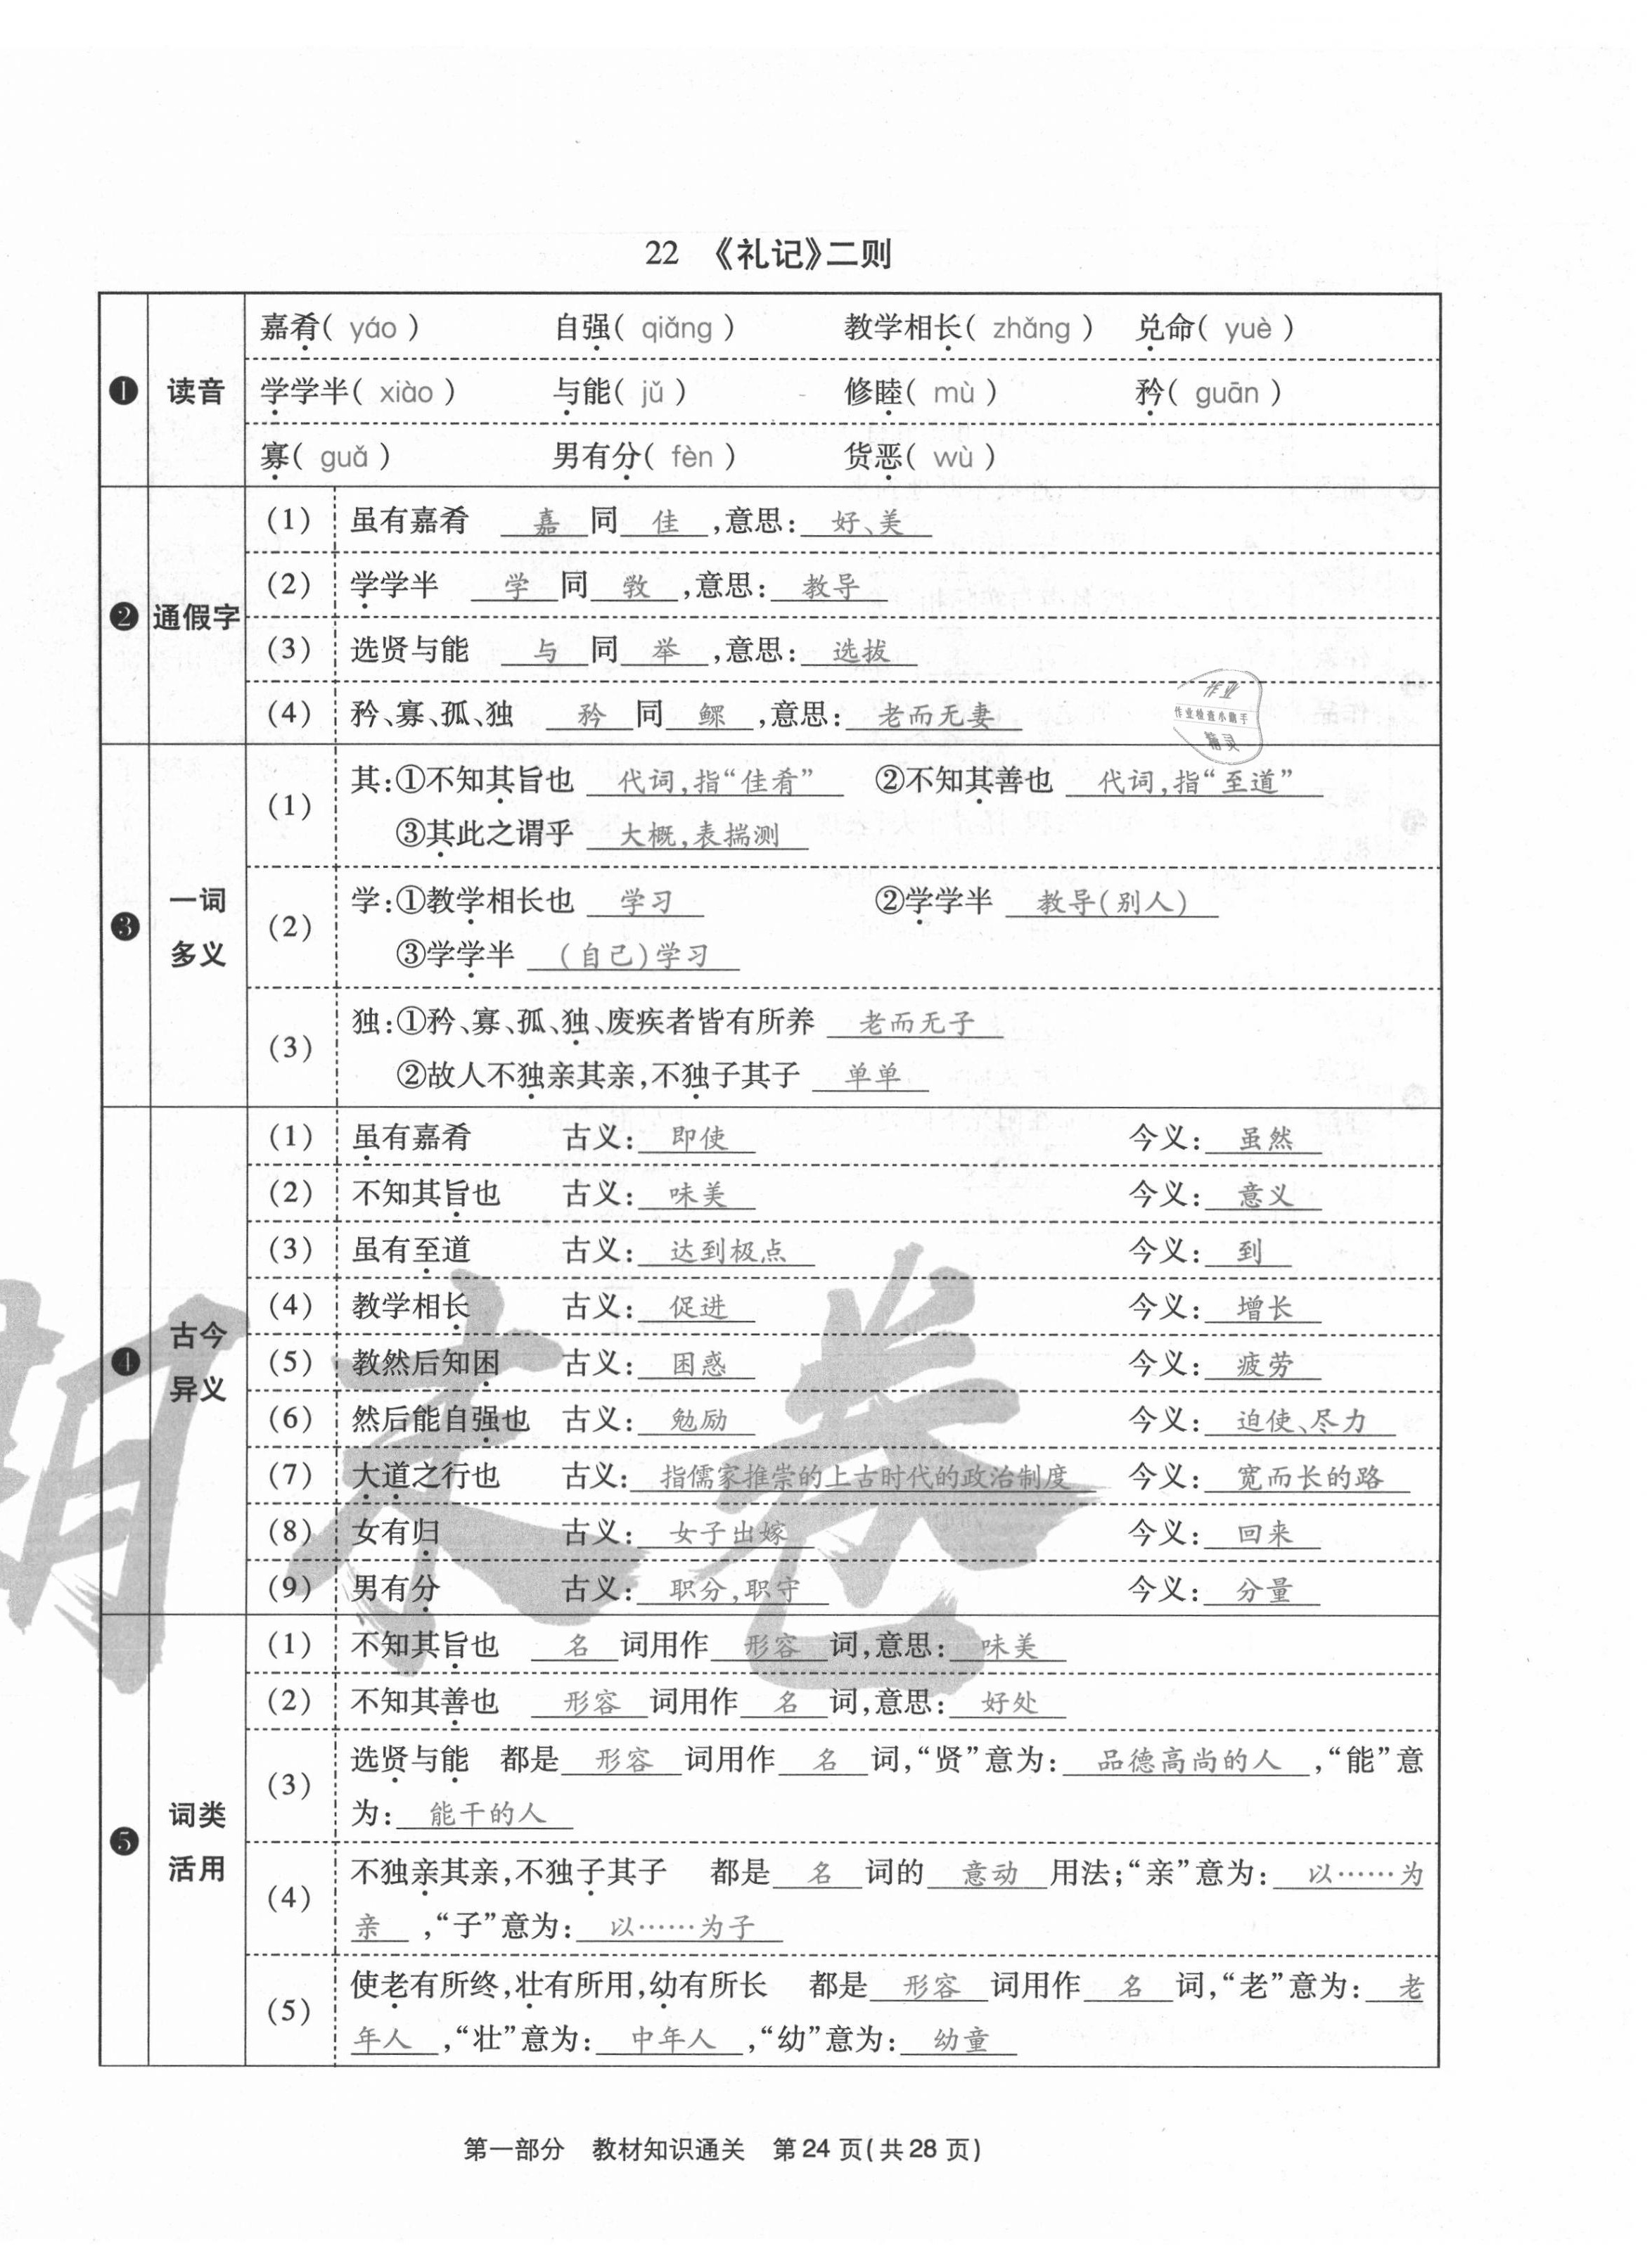 22 《礼记》二则
❶ 读音
嘉肴( yáo ) 自强( qiǎng ) 教学相长( zhǎng ) 兑命( yuè )
学学半( xiào ) 与能( jǔ ) 修睦( mù ) 矜( guān )
寡( guǎ ) 男有分( fèn ) 货恶( wù )
❷ 通假字
(1) 虽有嘉肴 嘉 同 佳 ,意思: 好、美
(2) 学学半 学 同 敩 ,意思: 教导
(3) 选贤与能 与 同 举 ,意思: 选拔
(4) 矜、寡、孤、独 矜 同 鳏 ,意思: 老而无妻
作业
作业检查小助手
精灵
❸ 一词多义
(1) 其:①不知其旨也 代词,指“佳肴” ②不知其善也 代词,指“至道”
③其此之谓乎 大概,表揣测
(2) 学:①教学相长也 学习 ②学学半 教导(别人)
③学学半 (自己)学习
(3) 独:①矜、寡、孤、独、废疾者皆有所养 老而无子
②故人不独亲其亲,不独子其子 单单
❹ 古今异义
(1) 虽有嘉肴 古义: 即使 今义: 虽然
(2) 不知其旨也 古义: 味美 今义: 意义
(3) 虽有至道 古义: 达到极点 今义: 到
(4) 教学相长 古义: 促进 今义: 增长
(5) 教然后知困 古义: 困惑 今义: 疲劳
(6) 然后能自强也 古义: 勉励 今义: 迫使、尽力
(7) 大道之行也 古义: 指儒家推崇的上古时代的政治制度 今义: 宽而长的路
(8) 女有归 古义: 女子出嫁 今义: 回来
(9) 男有分 古义: 职分,职守 今义: 分量
期末卷
❺ 词类活用
(1) 不知其旨也 名 词用作 形容 词,意思: 味美
(2) 不知其善也 形容 词用作 名 词,意思: 好处
(3) 选贤与能 都是 形容 词用作 名 词,“贤”意为: 品德高尚的人 ,“能”意
为: 能干的人
(4) 不独亲其亲,不独子其子 都是 名 词的 意动 用法;“亲”意为: 以……为
亲 ,“子”意为: 以……为子
(5) 使老有所终,壮有所用,幼有所长 都是 形容 词用作 名 词,“老”意为: 老
年人 ,“壮”意为: 中年人 ,“幼”意为: 幼童
第一部分 教材知识通关 第24页(共28页)